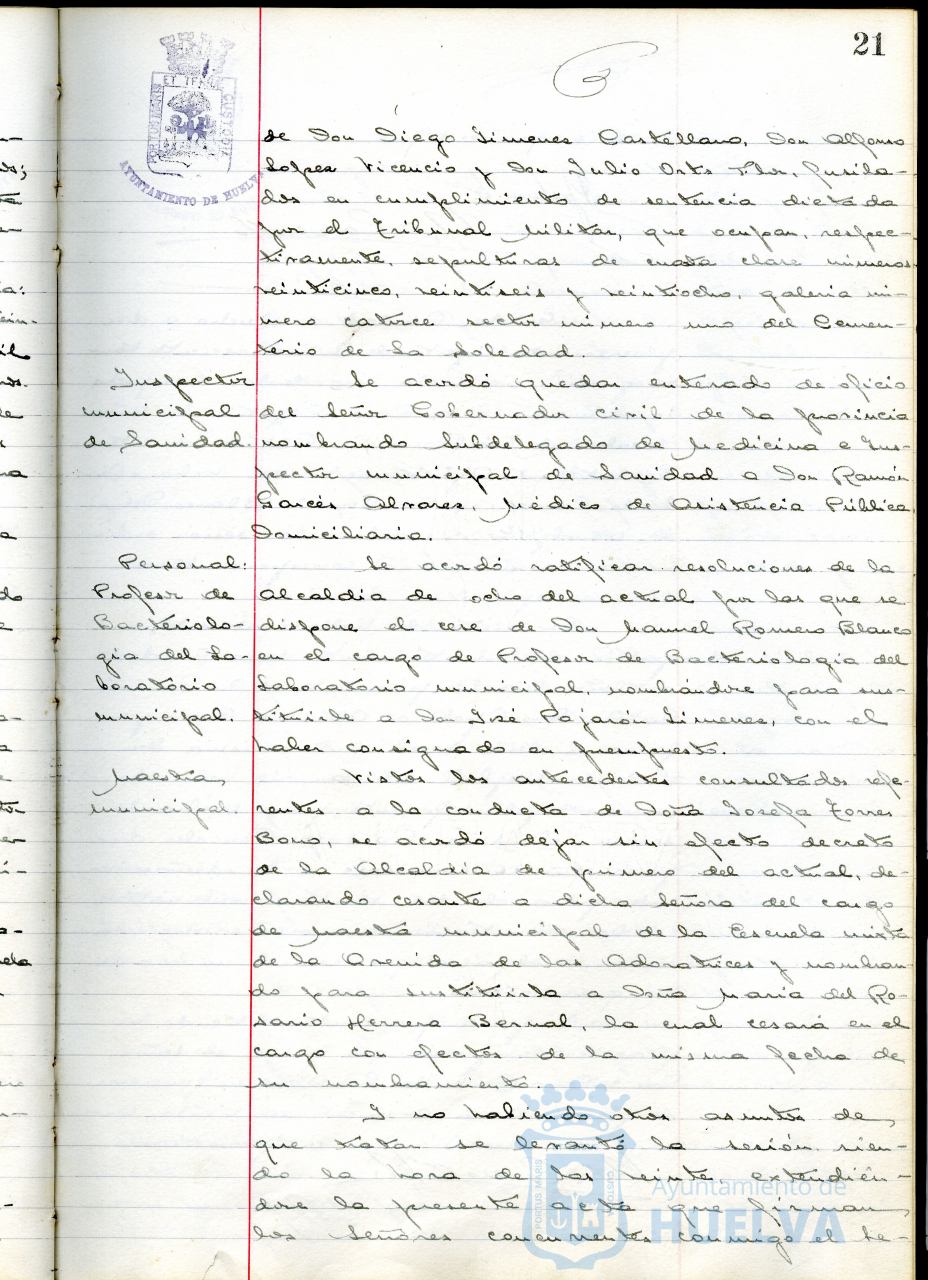 21
PORTUS MARIS ET TERRE CUSTODIA
AYUNTAMIENTO DE HUELVA
de Don Diego Jimenez Castellano, Don Alfonso
Lopez Vicencio y Don Julio Orts Flor, fusila-
dos en cumplimiento de sentencia dictada
por el Tribunal Militar, que ocupan, respec-
tivamente, sepulturas de cuarta clase números
veinticinco, veintiseis y veintiocho, galeria nú-
mero catorce sector número uno del Cemen-
terio de la Soledad.
Inspector
municipal
de Sanidad.
Se acordó quedar enterado de oficio
del Señor Gobernador civil de la provincia
nombrando Subdelegado de Medicina e Ins-
pector municipal de Sanidad a Don Ramón
Garcés Alvarez, Médico de Asistencia Pública
Domiciliaria.
Personal:
Profesor de
Bacteriolo-
gia del La-
boratorio
municipal.
Se acordó ratificar resoluciones de la
Alcaldia de ocho del actual por las que se
dispone el cese de Don Manuel Romero Blanco
en el cargo de Profesor de Bacteriologia del
Laboratorio municipal, nombrándose para sus-
tituirle a Don José Pajarón Jimenez, con el
haber consignado en presupuesto.
Maestra
municipal.
Vistos los antecedentes consultados refe-
rentes a la conducta de Doña Josefa Torres
Bono, se acordó dejar sin efecto decreto
de la Alcaldia de primero del actual, de-
clarando cesante a dicha Señora del cargo
de Maestra municipal de la Escuela mixta
de la Avenida de las Adoratrices y nombran-
do para sustituirla a Doña Maria del Ro-
sario Herrera Bernal, la cual cesará en el
cargo con efectos de la misma fecha de
su nombramiento.
Y no habiendo otros asuntos de
que tratar se levantó la sesión sien-
do la hora de las veinte, extendién-
dose la presente acta que firman
los Señores concurrentes conmigo el Se-
PORTUS MARIS
CUSTODIA
Ayuntamiento de
HUELVA